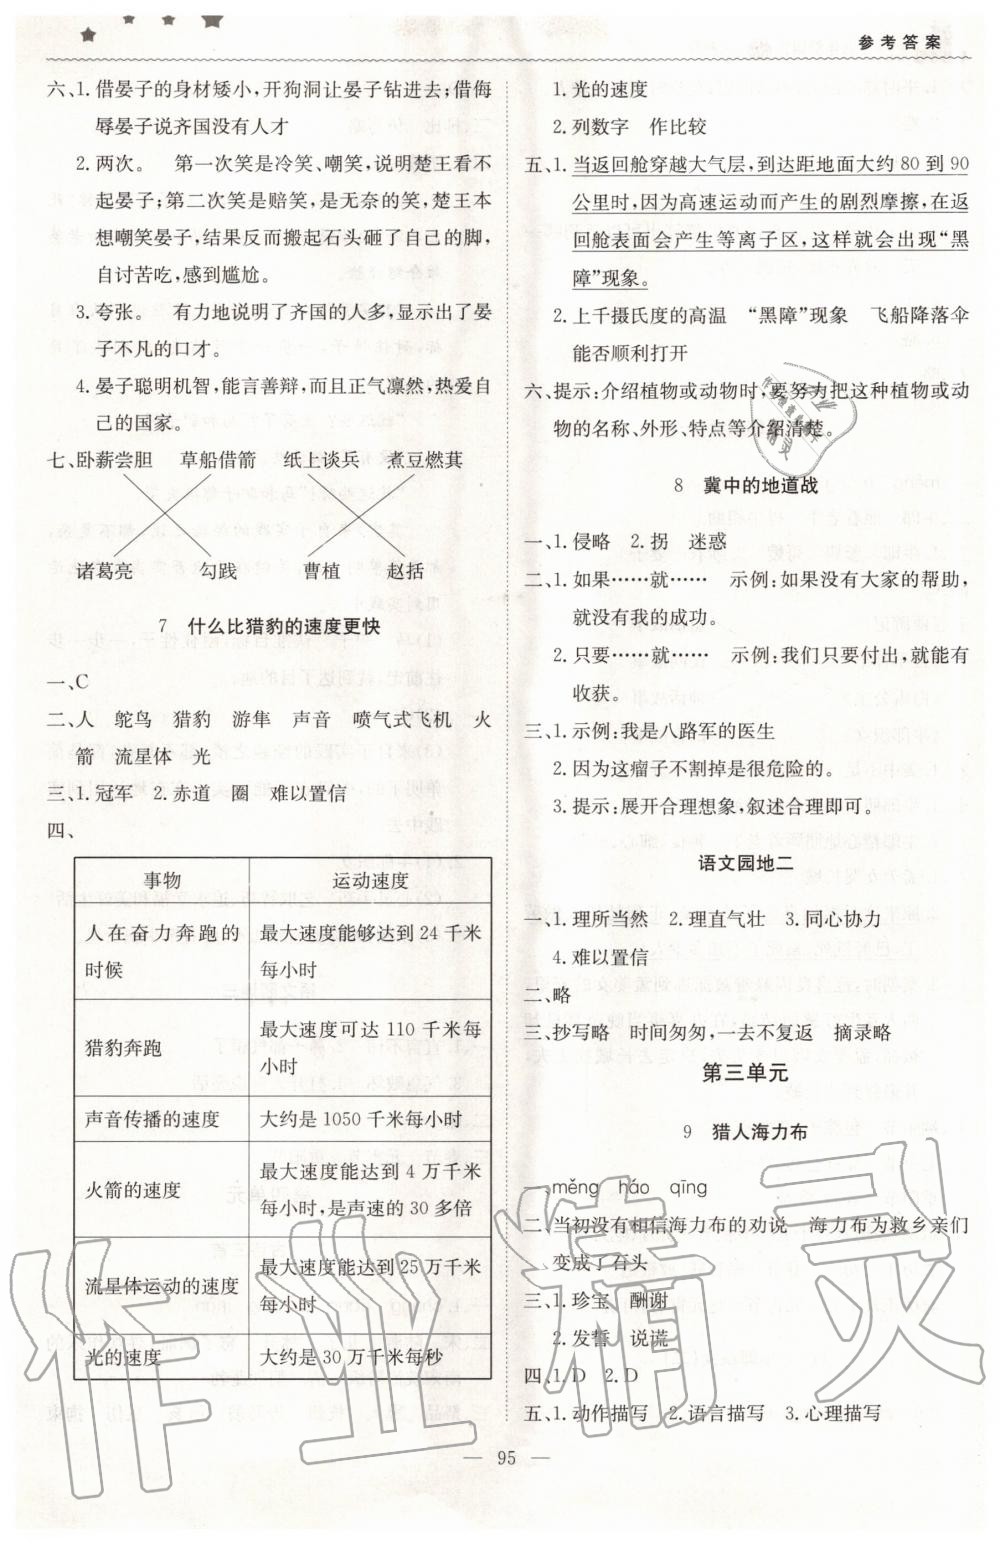 参考答案
六、1. 借晏子的身材矮小,开狗洞让晏子钻进去;借侮
辱晏子说齐国没有人才
2. 两次。 第一次笑是冷笑、嘲笑,说明楚王看不
起晏子;第二次笑是赔笑,是无奈的笑,楚王本
想嘲笑晏子,结果反而搬起石头砸了自己的脚,
自讨苦吃,感到尴尬。
3. 夸张。 有力地说明了齐国的人多,显示出了晏
子不凡的口才。
4. 晏子聪明机智,能言善辩,而且正气凛然,热爱自
己的国家。
七、卧薪尝胆 草船借箭 纸上谈兵 煮豆燃萁
诸葛亮 勾践 曹植 赵括
7 什么比猎豹的速度更快
一、C
二、人 鸵鸟 猎豹 游隼 声音 喷气式飞机 火
箭 流星体 光
三、1. 冠军 2. 赤道 圈 难以置信
四、
事物 运动速度
人在奋力奔跑的 最大速度能够达到 24 千米
时候 每小时
猎豹奔跑 最大速度可达 110 千米每
小时
声音传播的速度 大约是 1050 千米每小时
火箭的速度 最大速度能达到 4 万千米
每小时,是声速的 30 多倍
流星体运动的速度 最大速度能达到 25 万千米
每小时
光的速度 大约是 30 万千米每秒
1. 光的速度
2. 列数字 作比较
五、1. 当返回舱穿越大气层,到达距地面大约 80 到 90
公里时,因为高速运动而产生的剧烈摩擦,在返
回舱表面会产生等离子区,这样就会出现“黑
障”现象。
2. 上千摄氏度的高温 “黑障”现象 飞船降落伞
能否顺利打开
六、提示:介绍植物或动物时,要努力把这种植物或动
物的名称、外形、特点等介绍清楚。
8 冀中的地道战
一、1. 侵略 2. 拐 迷惑
二、1. 如果……就…… 示例:如果没有大家的帮助,
就没有我的成功。
2. 只要……就…… 示例:我们只要付出,就能有
收获。
三、1. 示例:我是八路军的医生
2. 因为这瘤子不割掉是很危险的。
3. 提示:展开合理想象,叙述合理即可。
语文园地二
一、1. 理所当然 2. 理直气壮 3. 同心协力
4. 难以置信
二、略
三、抄写略 时间匆匆,一去不复返 摘录略
第三单元
9 猎人海力布
一、měng háo qīng
二、当初没有相信海力布的劝说 海力布为救乡亲们
变成了石头
三、1. 珍宝 酬谢
2. 发誓 说谎
四、1. D 2. D
五、1. 动作描写 2. 语言描写 3. 心理描写
— 95 —
作业精灵